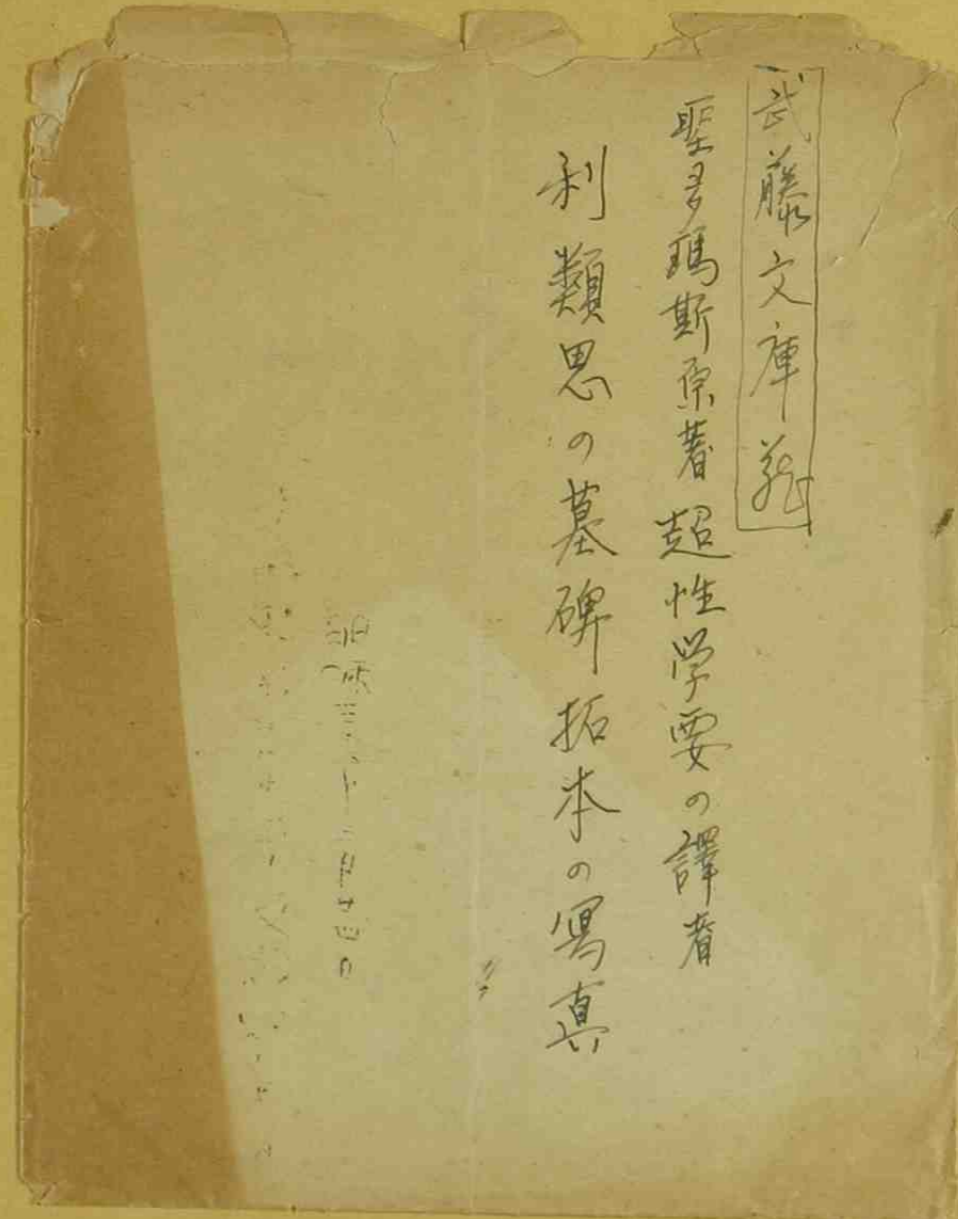 武藤文庫蔵
聖多瑪斯原著超性学要の譯者
利類思の墓碑拓本の寫真
昭和三年十二月廿四日